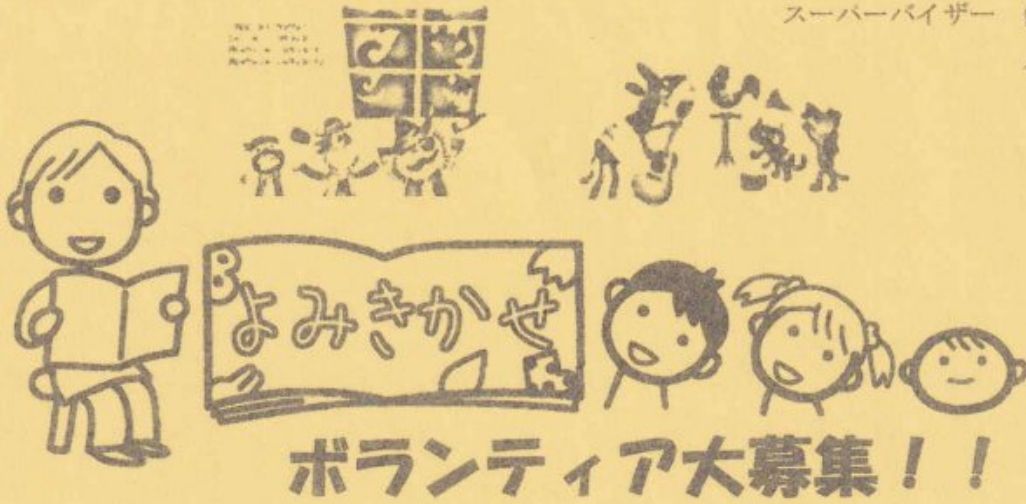 スーパーバイザー
よみきかせ
ボランティア大募集！！